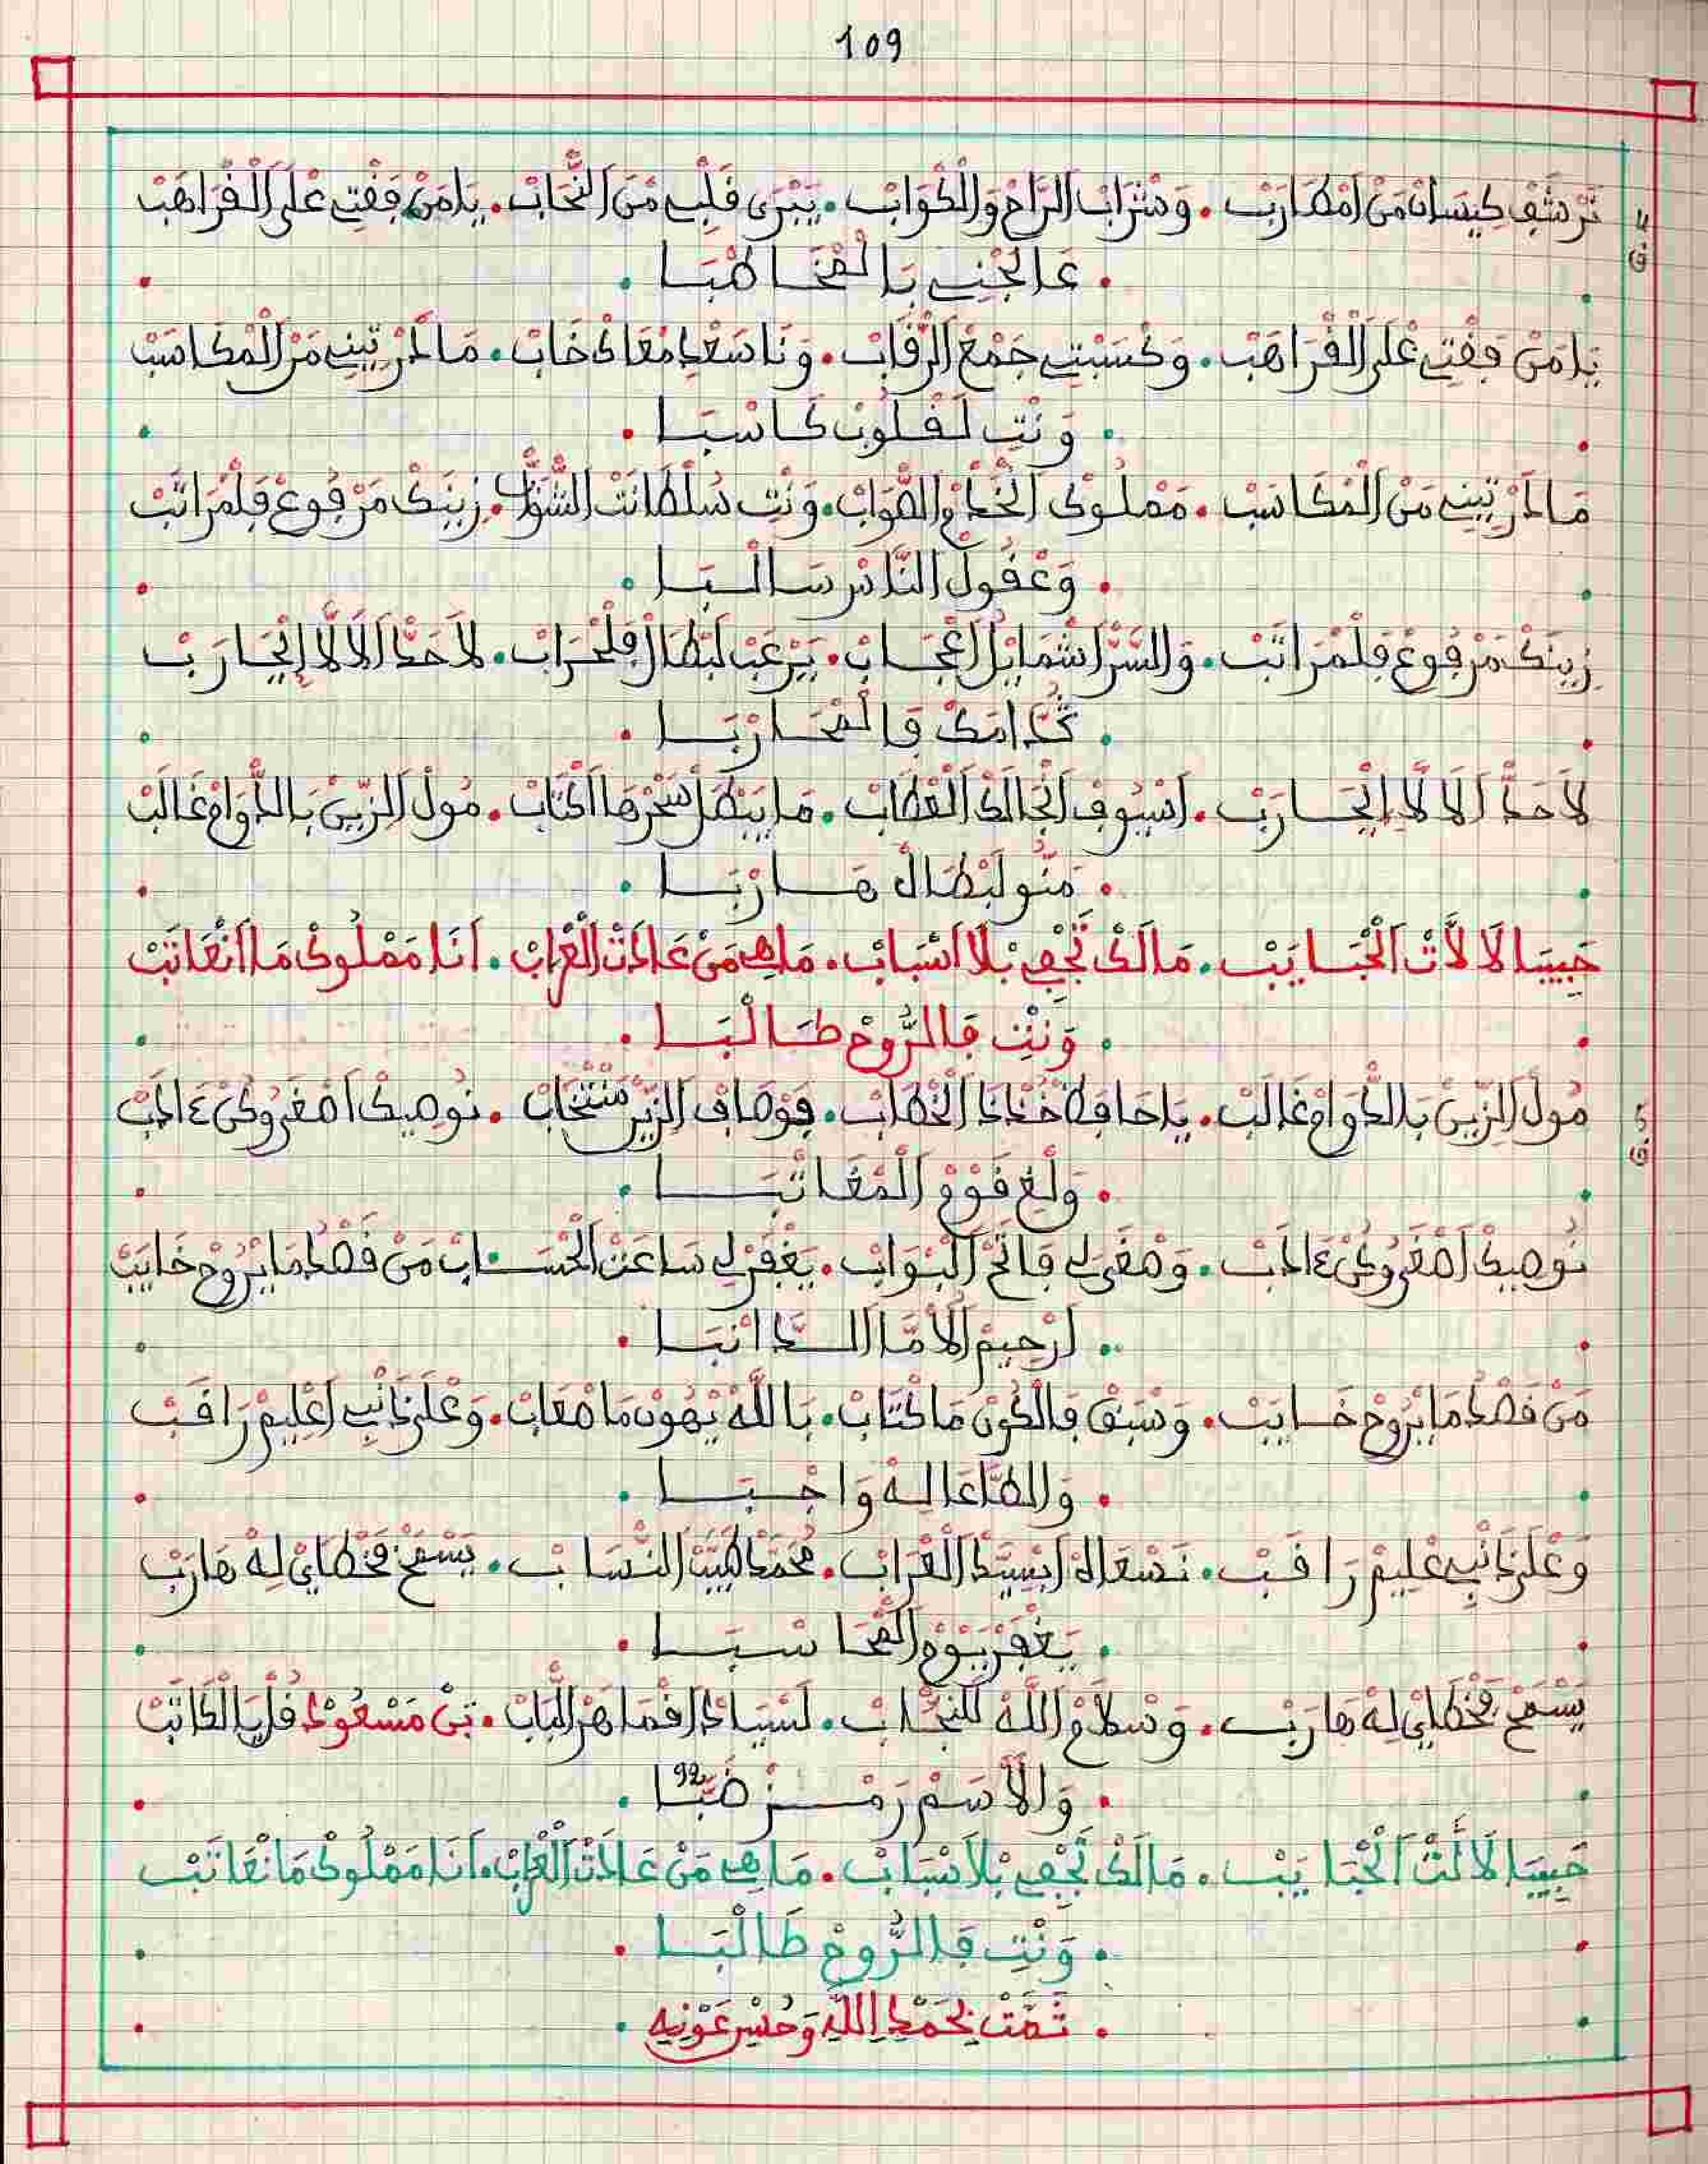 109
تَرْشَفْ كِيسَانْ مَنْ اَمْطَارَبْ . وَشْرَابْ الرَّاحْ وَالْكْوَابْ . يَبْرَى قَلْبِي مَنْ النّْحَابْ . يَا مَنْ فَقْتِي عْلَى الْقْرَاهَبْ
4
ق
. عَالْجْنِي بَالْمْخَاطْبَا .
يَا مَنْ فَقْتِي عْلَى الْقْرَاهَبْ . وَكْسَبْتِي جَمْعْ الرْقَابْ . وَنَا سَعْدِي مْعَاكْ خَابْ . مَالَكْ تِينِي مَنْ الْمْكَاسَبْ
. وَنْتِ لَقْلُوبْ كَاسْبَا .
مَالَكْ تِينِي مَنْ الْمْكَاسَبْ . مَمْلُوكْ الْخْدَمْ وَالصّْوَابْ . وَنْتِ سُلْطَانْتْ الشّْوَابْ . زِينَكْ مَرْفُوعْ فَلْمْرَاتَبْ
. وَعْقُولْ النَّاسْ سَالْبَا .
زِينَكْ مَرْفُوعْ فَلْمْرَاتَبْ . وَالسَّرّْ اشْمَايْلْ اَعْجَابْ . يَرْعَبْ لَبْطَالْ فَلْحْرَابْ . لَاحَدّْ اَلَالَّا اِيْحَارَبْ
. ڭُدَّامَكْ فَالْمْحَارْبَا .
لَاحَدّْ اَلَالَّا اِيْحَارَبْ . اَسْيُوفْ اَنْجَالَكْ الْعْطَابْ . مَا يَبْطَلْ سَحْرْهَا اَكْتَابْ . مُولْ الزِّينْ بَالدّْوَامْ غَالَبْ
. مَنُّو لَبْطَالْ هَارْبَا .
حَبِيبَا لَالَّاتْ الْحْبَايَبْ . مَالَكْ تَجْفِي بْلَا اَسْبَابْ . مَاهِي مَنْ عَادَتْ الْعْرَابْ . اَنَا مَمْلُوكْ مَا اَنْعَاتَبْ
. وَنْتِ فَالرُّوحْ طَالْبَا .
مُولْ الزِّينْ بَالدّْوَامْ غَالَبْ . يَا حَافَظْ خُذْ ذَا الْخْطَابْ . فَوْصَافْ الزِّينْ مَنْتْخَابْ . نُوصِيكْ اَمْعَ رُوكْ ءَادَبْ
5
ق
. وَلْغِي قَوْمْ الْمْعَاتْبَا .
نُوصِيكْ اَمْعَ رُوكْ ءَادَبْ . وَصْغَى لِي فَاتَحْ الْبْوَابْ . يَغْفَرْ لِي سَاعَتْ الْحْسَابْ مَنْ قَصْدُ مَا يْرُوحْ خَايَبْ
. لَرْحِيمْ اَلَامَّا الدَّانْبَا .
مَنْ قَصْدُ مَا يْرُوحْ خَايَبْ . وَسْبَقْ فَالْكُونْ مَا كْتَابْ . بَاللَّهْ يْهُونْ مَا صْعَابْ . وَعْلَى ذَنْبِي اَعْلِيمْ رَاقَبْ
. وَالطَّاعَا لِهْ وَاجْبَا .
وَعْلَى ذَنْبِي عْلِيمْ رَاقَبْ . نَسْعَاهْ اَبْسِيدْ الْعْرَابْ . مُحَمَّدْ طَيَّبْ النّْسَابْ . يَسْمَحْ فَخْطَايْ لِهْ هَارَبْ
. يَغْفَرْ يَوْمْ الْمْحَاسْبَا .
يَسْمَحْ فَخْطَايْ لِهْ هَارَبْ . وَسْلَامْ اللَّهْ لَلنّْجَابْ . لَسْيَادْ اَفْمَاهَرْ الْبَابْ . بَنْ مَسْعُودْ قُلْ يَا الْكَاتَبْ
92
. وَالْاَسَمْ رَمْزْ ضَبَّا .
حَبِيبَا لَالَّتْ الْحْبَايَبْ . مَالَكْ تَجْفِي بْلَا سْبَابْ . مَاهِي مَنْ عَادَتْ الْعْرَابْ . اَنَا مَمْلُوكْ مَا نْعَاتَبْ
. وَنْتِ فَالرُّوحْ طَالْبَا .
. تَمَّتْ بِحَمْدِ اللَّهِ وَحُسْنِ عَوْنِهِ .